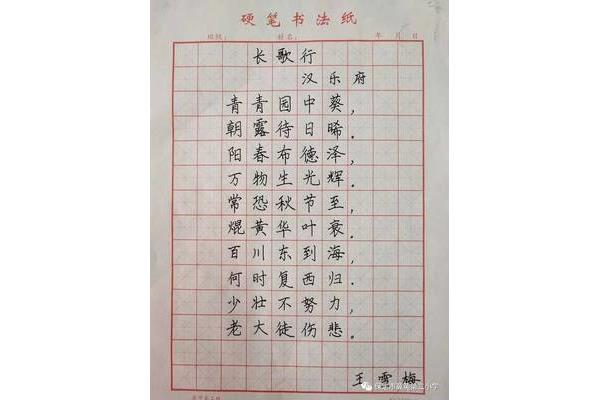 硬笔书法纸
班级： 姓名： 年 月 日
长歌行
汉乐府
青青园中葵，
朝露待日晞．
阳春布德泽，
万物生光辉．
常恐秋节至，
焜黄华叶衰．
百川东到海，
何时复西归．
少壮不努力，
老大徒伤悲．
王雪梅